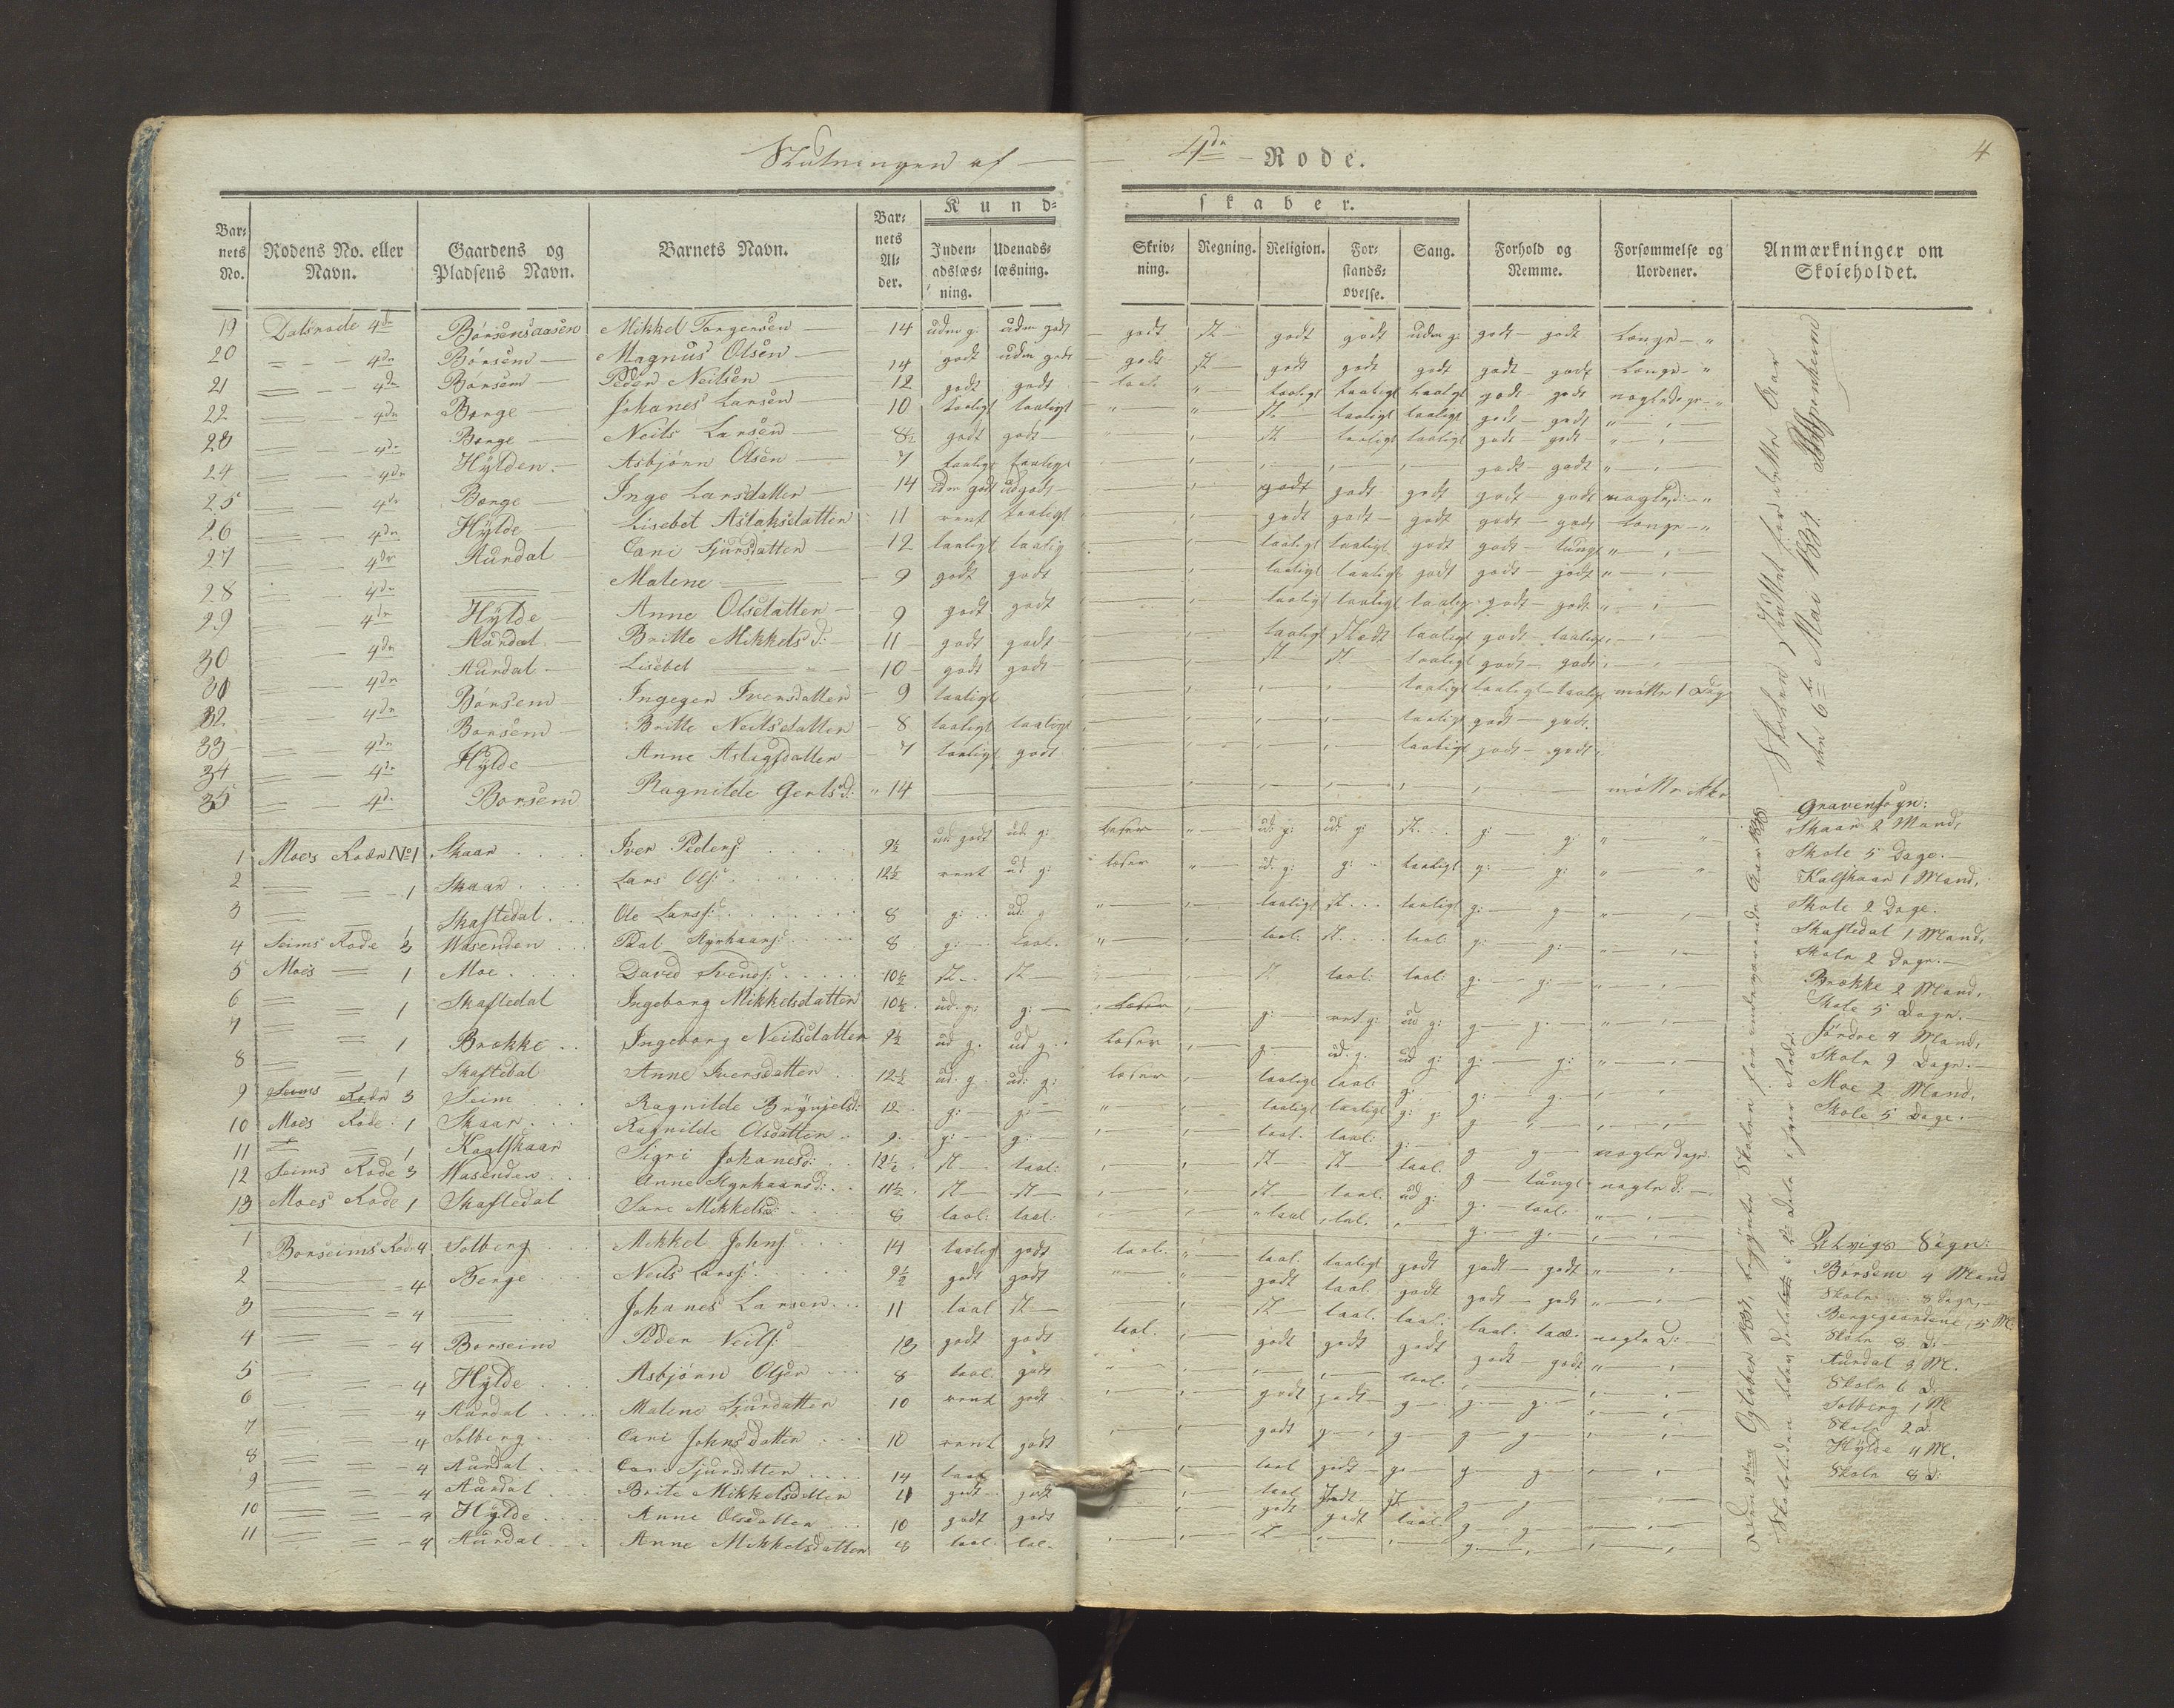 Slutningen af — 4de Rode.
4
Kundskaber.
Barnets No. | Rodens No. eller Navn. | Gaardens og Pladsens Navn. | Barnets Navn. | Barnets Alder. | Indenadslæsning. | Udenadslæsning. | Skrivning. | Regning. | Religion. | Forstandsøvelse. | Sang. | Forhold og Nemme. | Forsømmelse og Uordener. | Anmærkninger om Skoleholdet.
19 | Dalsrode 4de | Børsensaasen | Mikkel Torgersen | 14 | udm g. | udm godt | godt | sl | godt | godt | udm g. | godt — godt | længe — "
20 | — 4de | Børsem | Magnus Olsen | 14 | godt | udm godt | godt | sl | godt | godt | godt | godt — godt | længe — "
21 | — 4de | Børsem | Peder Neilsen | 12 | godt | godt | taal. | " | taaligt | taaligt | taaligt | godt — godt
22 | — 4de | Børge | Johanes Larsen | 10 | taaligt | taaligt | " | " | sl | taaligt | taaligt | godt — godt | " — "
23 | — 4de | Børge | Neils Larsen | 8½ | godt | godt | sl | taaligt | taaligt | godt — godt | " — "
24 | — 4de | Hÿlden | Asbjörn Olsen | 7 | taaligt | taaligt | godt — godt | " — "
25 | — 4de | Børge | Inge Larsdatter | 14 | udm godt | ud godt | godt | godt | godt | godt — godt
26 | — 4de | Hÿlde | Lisebet Aslaksdatter | 11 | rent | taaligt | godt | godt | godt | godt — godt | længe — "
27 | — 4de | Aurdal | Cari Sjursdatter | 12 | taaligt | taalig | taaligt | taaligt | godt | godt — tungt | " — "
28 | — 4de | — | Malene — | 9 | godt | godt | taaligt | taaligt | godt | godt — godt | " — "
29 | — 4de | Hÿlde | Anne Olsdatter | 9 | godt | godt | taaligt | taaligt | taalig | godt — godt | " — "
30 | — 4de | Aurdal | Britte Mikkelsd: | 11 | godt | godt | taaligt | taaligt | godt — taaligt
31 | — 4de | Aurdal | Lisebet — | 10 | godt | godt | sl | sl | taaligt | godt — godt
32 | — 4de | Børsem | Ingeger Iversdatter | 9 | taaligt | taaligt | taaligt — taalig | mötte 1 Dag
33 | — 4de | Børsem | Britte Neilsdatter | 8 | taaligt | taaligt | taaligt | godt — godt
34 | — 4de | Hÿlde | Anne Aslagsdatter | 7 | taaligt | godt | taaligt | godt — godt
35 | — 4de | Borsem | Ragnilde Gertsd: | 14 | mötte ikke
Skolen sluttet for dette Aar
den 6te Mai 1837.
1 | Moes Roden No 1 | Skaar | Iver Peders: | 9½ | ud godt | ud: g: | læser | " | ud: g: | ud: g: | sl | g: — g: | " — "
2 | — 1 | Skaar | Lars Ols: | 12½ | rent | ud g: | læser | " | ud. g: | g: | taaligt | g: — g: | " — "
3 | — 1 | Skaftedal | Ole Larss: | 8 | g: | ud: g | " | taaligt | sl | taaligt | g: — g
4 | Seims Rode 3 | Wasenden | Pål Styrkaars: | 8 | g: | taal. | " | taal: | sl | taal: | g: — g:
5 | Moes — 1 | Moe | David Svends: | 10½ | sl | sl | sl | taal: | taal: | g: — g:
6 | — 1 | Skaftedal | Ingeborg Mikkelsdatter | 10½ | ud. g: | g: | læser | g: | ud g: | g — g.
7 | — 1 | Brække | Ingeborg Neilsdatter | 9½ | ud g. | ud g. | læser | g | ud. g. | ud g: | g: — g:
8 | — 1 | Skaftedal | Anne Iversdatter | 12½ | ud. g. | ud: g: | læser | taaligt | taal: | g: | g: — g.
9 | Seims Roden 3 | Seim | Ragnilde Brÿnjelsd: | 12 | g: | g: | " | taaligt | taaligt | g: g:
10 | Moes Rode: 1 | Skaar | Ragnilde Olsdatter | 9 | g: | g: | taal. | taal: | g: | g — g
11 | — 1 | Kaalskaar | Sigri Johanesd: | 12½ | sl | taal: | sl | sl | taal. | nogle Dage
12 | Seims Rode 3 | Wasenden | Anne Styrkaarsd: | 11½ | sl | sl | sl | taal. | ud g: | g — tungt | nogle d:
13 | Moes Rode 1 | Skaftedal | Sare Mikkelsd: | 8 | taal: | taal: | taal | g. — taal.
1 | Borseims Rode 4 | Solberg | Mikkel Johns: | 14 | taalig | godt | taal. | " | taal. | taaligt | godt | godt — godt
2 | — 4 | Berge | Neils Larss: | 9½ | godt | godt | " | " | godt | taal. | godt | godt — godt
3 | — 4 | — | Johanes Larsen | 11 | taal | sl | sl | taal. | taal. | taal. taal. | nogle D:
4 | — 4 | Borseim | Peder Neils: | 13 | godt | godt | taal. | godt | godt | godt | godt — godt
5 | — 4 | Hÿlde | Asbjörn Olsen | 8 | taal. | godt | taal.
6 | — 4 | Aurdal | Malene Sjurdatter | 10 | rent | godt | godt | godt | g | g. — g.
7 | — 4 | Solberg | Cari Johnsdatter | 10 | rent | godt | godt | g | g | g — g
8 | — 4 | Aurdal | Cari Sjursdatter | 14 | taal | taal | godt | g | g — g
9 | — 4 | Aurdal | Brite Mikkelsdatter | 11 | godt | godt | taal | g — g
10 | — 4 | Hÿlde | Anne Olesdatter | 10 | godt | godt | godt | godt | taal. | g — g
11 | — 4 | Aurdal | Anne Mikkelsdatter | 8 | taal. | tal. | sl | g
Gravensogn:
Skaar 2 Mand,
Skole 5 Dage. —
Kalskaar 1 Mand,
Skole 2 Dage.
Skaftedal 1 Mand,
Skole 2 Dage. —
Brække 2 Mand,
Skole 5 Dage. —
Jördre 4 Mand,
Skole 9 Dage. —
Moe 2 Mand,
Skole 5 Dage. —
Ulvigs Sogn:
Børsem 4 Mand
Skole 8 Dage, —
Bergegaardene, 5 M.
Skole 8 D: —
Aurdal 3 M.
Skole 6 D.
Solberg 1 M
Skole 2 d.
Hÿlde 4 M.
Skole 8 D:
Den 2den October 1837, begÿnte Skolen for indeværende Aar